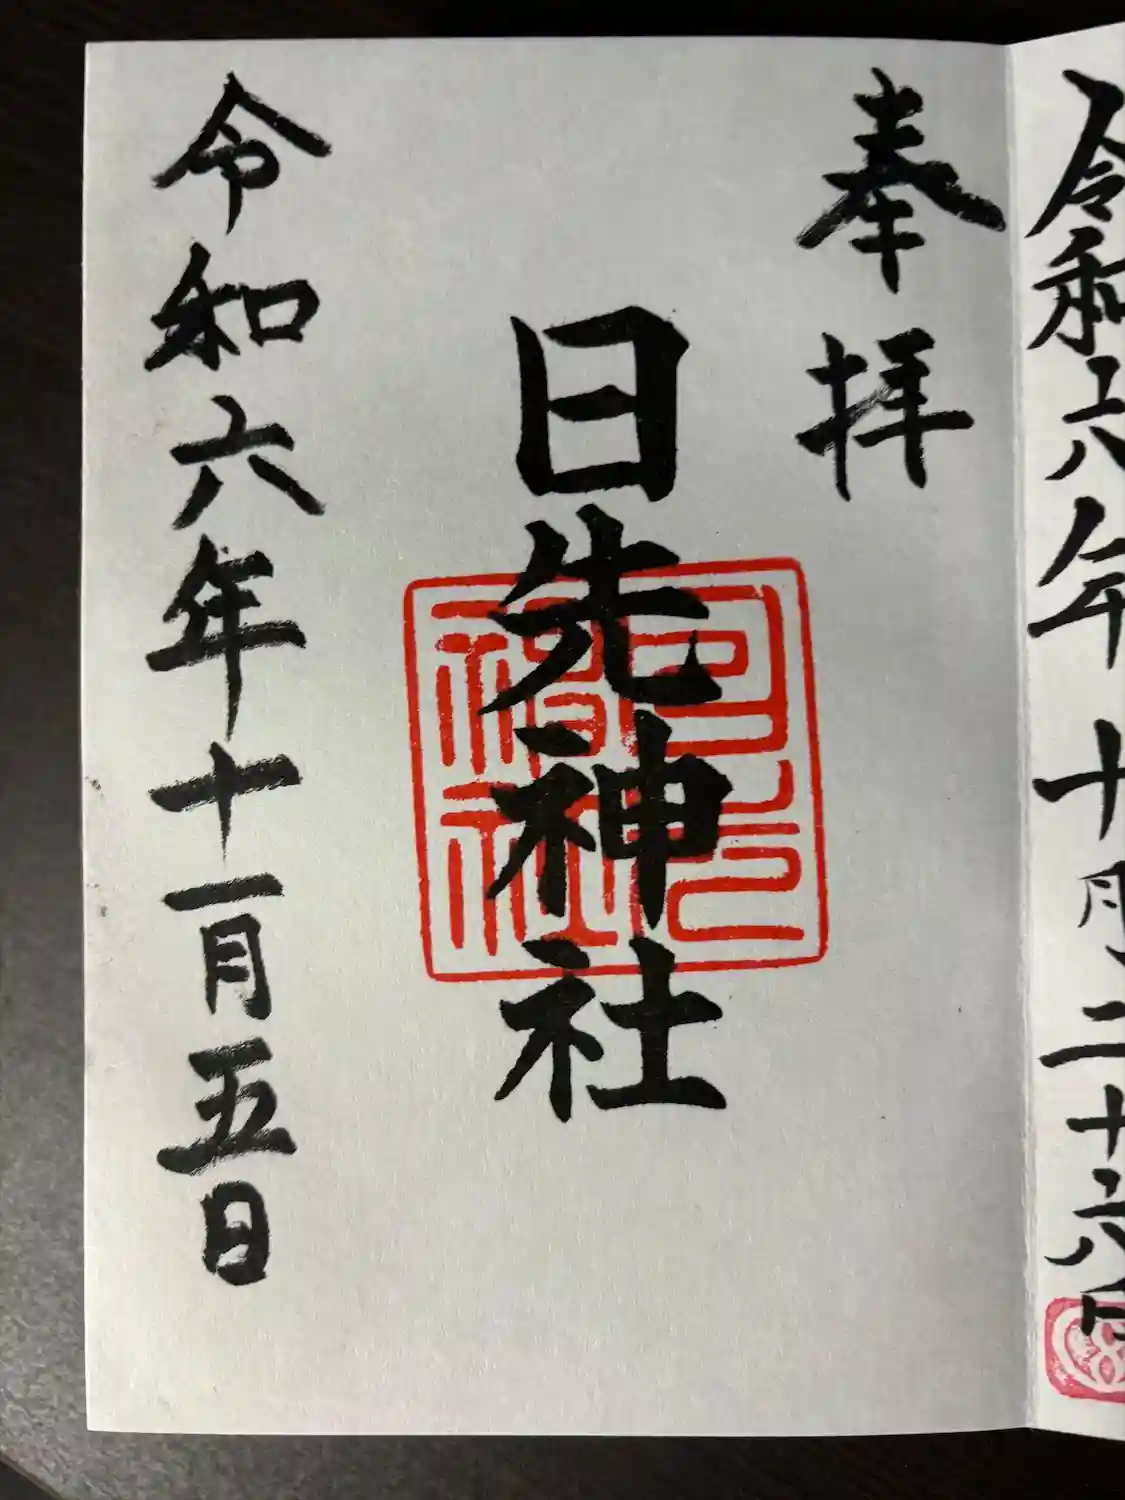 令和六年十月二十六日
奉拝
日先神社
日先神社
令和六年十一月五日